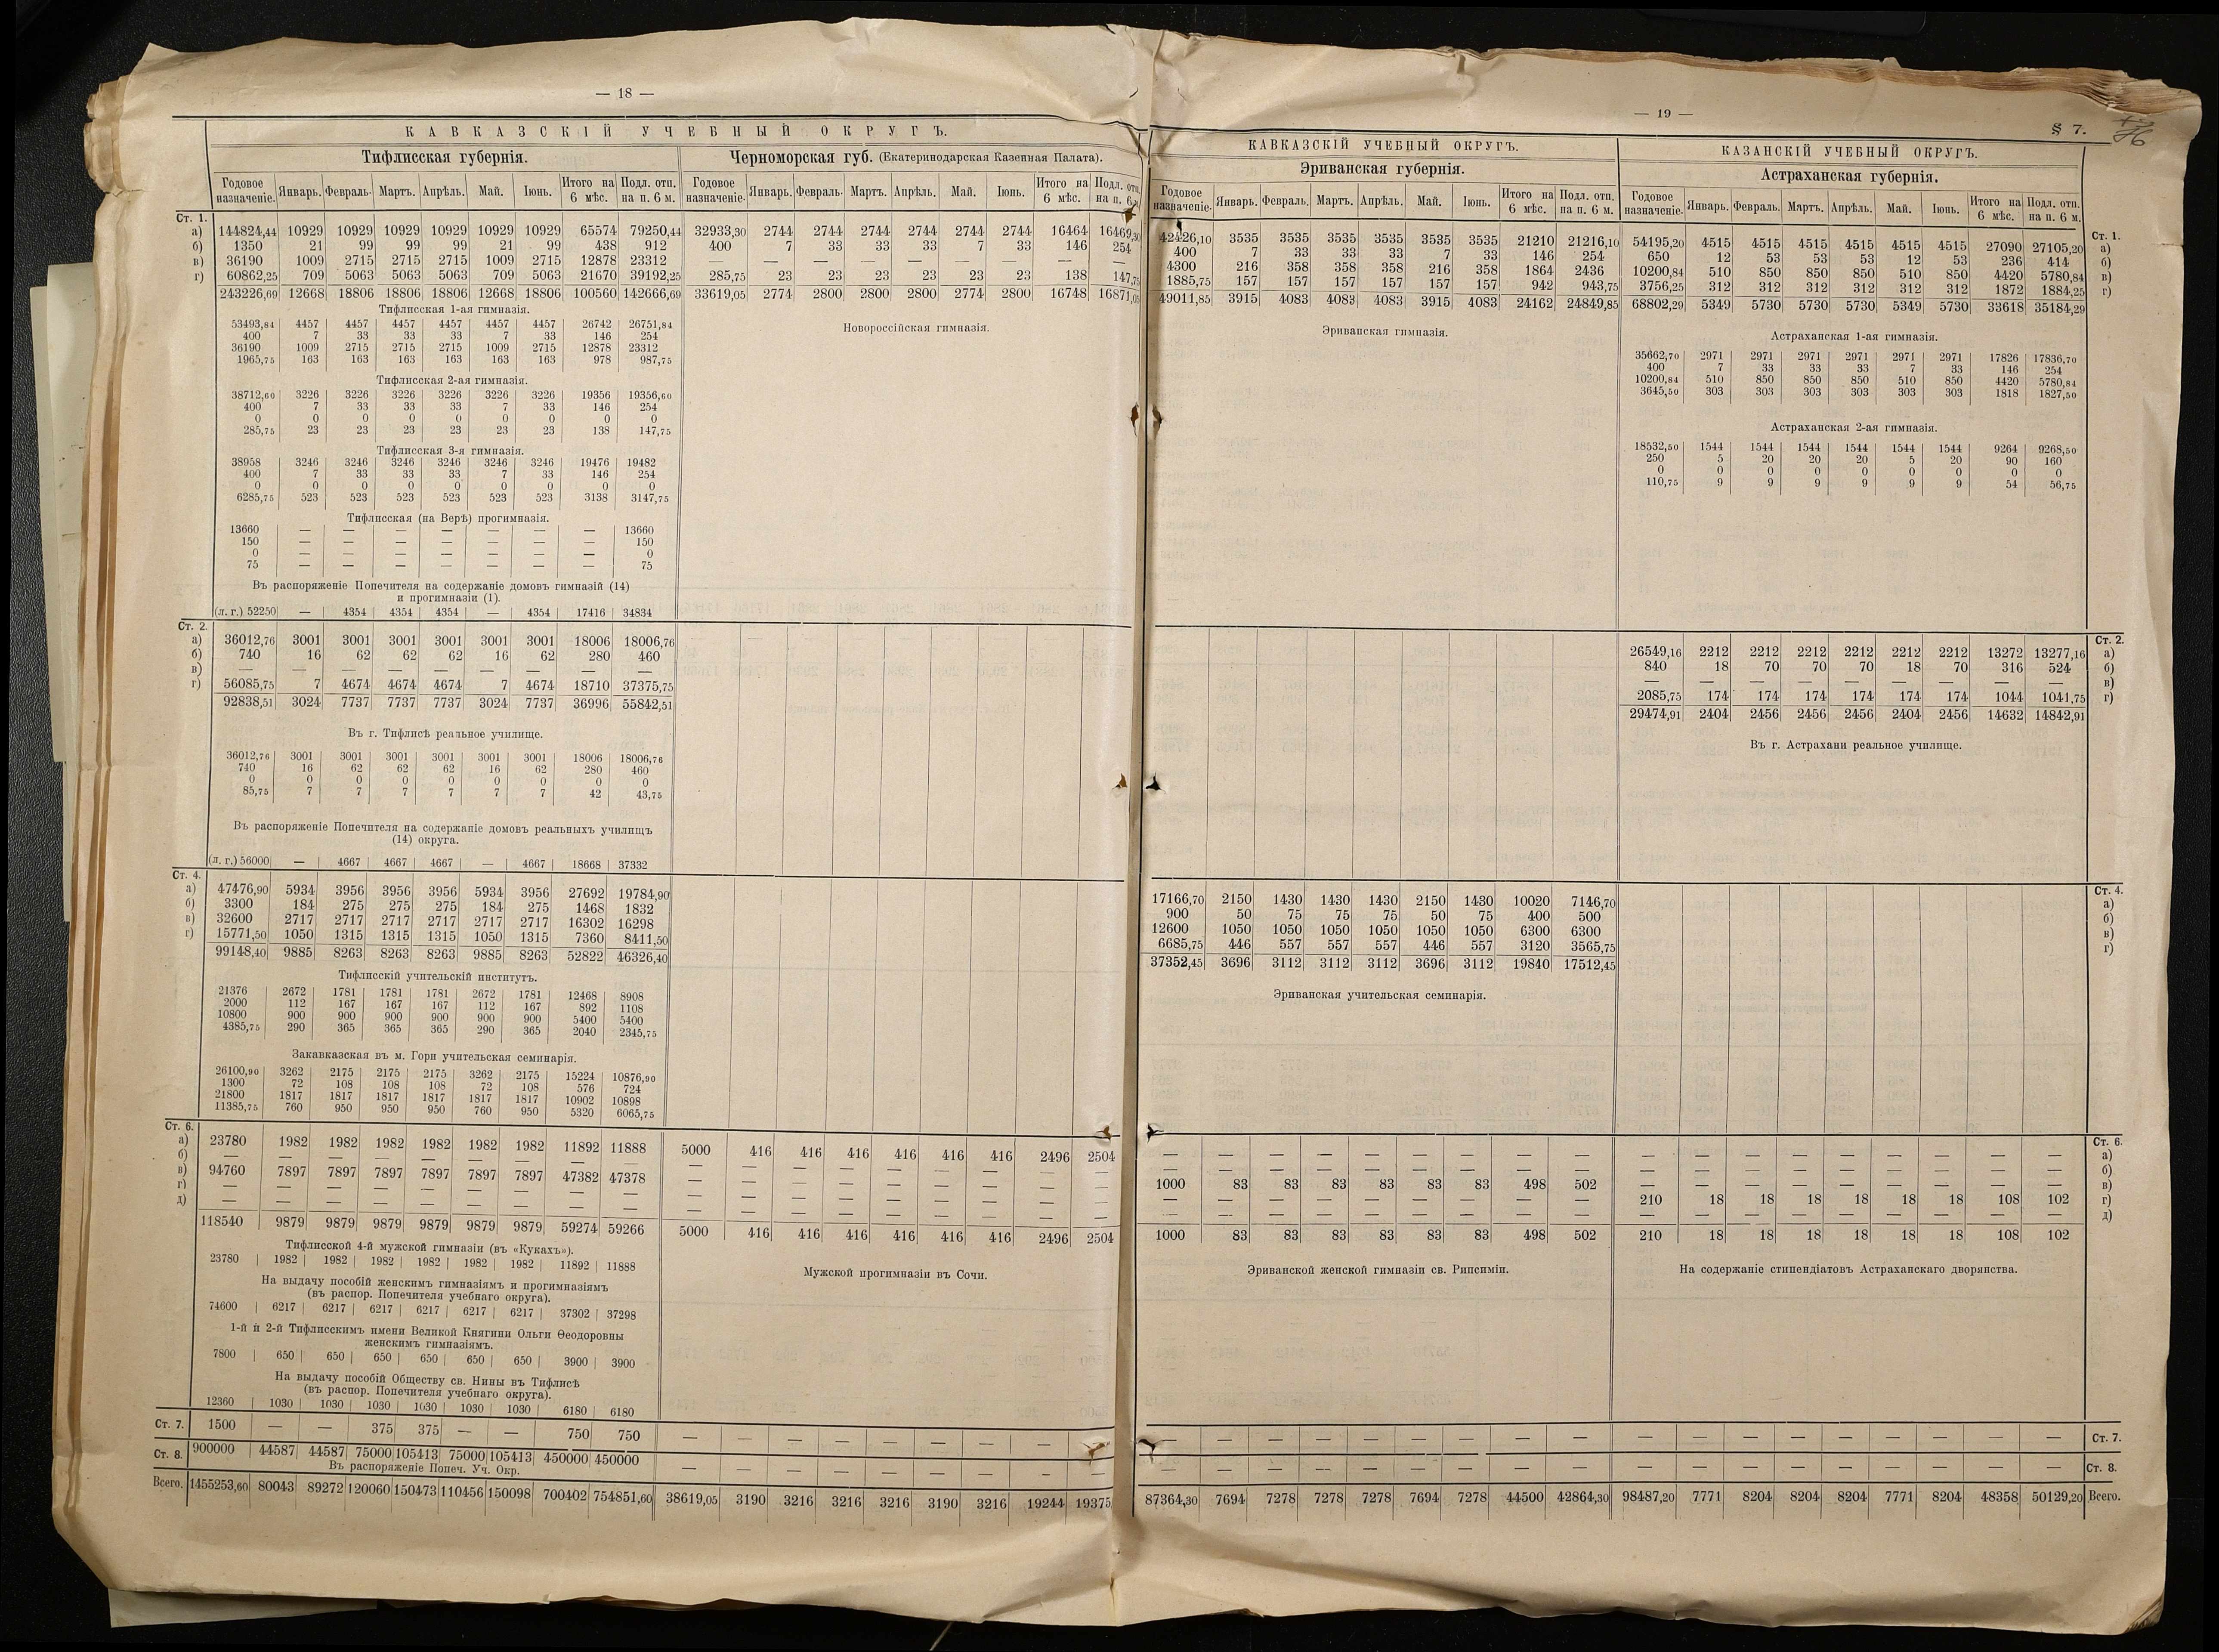 — 18 —
КАВКАЗСКІЙ УЧЕБНЫЙ ОКРУГЪ.
Тифлисская губернія. Черноморская губ. (Екатеринодарская Казенная Палата).
Годовое назначеніе. Январь. Февраль. Мартъ. Апрѣль. Май. Іюнь. Итого на 6 мѣс. Подл. отп. на п. 6 м. Годовое назначеніе. Январь. Февраль. Мартъ. Апрѣль. Май. Іюнь. Итого на 6 мѣс. Подл. отп. на п. 6 м.
Ст. 1.
а) 144824,44 10929 10929 10929 10929 10929 10929 65574 79250,44 32933,30 2744 2744 2744 2744 2744 2744 16464 16469,30
б) 1350 21 99 99 99 21 99 438 912 400 7 33 33 33 7 33 146 254
в) 36190 1009 2715 2715 2715 1009 2715 12878 23312 — — — — — — — — —
г) 60862,25 709 5063 5063 5063 709 5063 21670 39192,25 285,75 23 23 23 23 23 23 138 147,75
243226,69 12668 18806 18806 18806 12668 18806 100560 142666,69 33619,05 2774 2800 2800 2800 2774 2800 16748 16871,05
Тифлисская 1-ая гимназія. Новороссійская гимназія.
53493,84 4457 4457 4457 4457 4457 4457 26742 26751,84
400 7 33 33 33 7 33 146 254
36190 1009 2715 2715 2715 1009 2715 12878 23312
1965,75 163 163 163 163 163 163 978 987,75
Тифлисская 2-ая гимназія.
38712,60 3226 3226 3226 3226 3226 3226 19356 19356,60
400 7 33 33 33 7 33 146 254
0 0 0 0 0 0 0 0 0
285,75 23 23 23 23 23 23 138 147,75
Тифлисская 3-я гимназія.
38958 3246 3246 3246 3246 3246 3246 19476 19482
400 7 33 33 33 7 33 146 254
0 0 0 0 0 0 0 0 0
6285,75 523 523 523 523 523 523 3138 3147,75
Тифлисская (на Верѣ) прогимназія.
13660 — — — — — — — 13660
150 — — — — — — — 150
0 — — — — — — — 0
75 — — — — — — — 75
Въ распоряженіе Попечителя на содержаніе домовъ гимназій (14)
и прогимназіи (1).
(л. г.) 52250 — 4354 4354 4354 — 4354 17416 34834
Ст. 2.
а) 36012,76 3001 3001 3001 3001 3001 3001 18006 18006,76
б) 740 16 62 62 62 16 62 280 460
в) — — — — — — — — —
г) 56085,75 7 4674 4674 4674 7 4674 18710 37375,75
92838,51 3024 7737 7737 7737 3024 7737 36996 55842,51
Въ г. Тифлисѣ реальное училище.
36012,76 3001 3001 3001 3001 3001 3001 18006 18006,76
740 16 62 62 62 16 62 280 460
0 0 0 0 0 0 0 0 0
85,75 7 7 7 7 7 7 42 43,75
Въ распоряженіе Попечителя на содержаніе домовъ реальныхъ училищъ
(14) округа.
(л. г.) 56000 — 4667 4667 4667 — 4667 18668 37332
Ст. 4.
а) 47476,90 5934 3956 3956 3956 5934 3956 27692 19784,90
б) 3300 184 275 275 275 184 275 1468 1832
в) 32600 2717 2717 2717 2717 2717 2717 16302 16298
г) 15771,50 1050 1315 1315 1315 1050 1315 7360 8411,50
99148,40 9885 8263 8263 8263 9885 8263 52822 46326,40
Тифлисскій учительскій институтъ.
21376 2672 1781 1781 1781 2672 1781 12468 8908
2000 112 167 167 167 112 167 892 1108
10800 900 900 900 900 900 900 5400 5400
4385,75 290 365 365 365 290 365 2040 2345,75
Закавказская въ м. Гори учительская семинарія.
26100,90 3262 2175 2175 2175 3262 2175 15224 10876,90
1300 72 108 108 108 72 108 576 724
21800 1817 1817 1817 1817 1817 1817 10902 10898
11385,75 760 950 950 950 760 950 5320 6065,75
Ст. 6.
а) 23780 1982 1982 1982 1982 1982 1982 11892 11888 5000 416 416 416 416 416 416 2496 2504
б) — — — — — — — — — — — — — — — — — —
в) 94760 7897 7897 7897 7897 7897 7897 47382 47378 — — — — — — — — —
г) — — — — — — — — — — — — — — — — — —
д) — — — — — — — — — — — — — — — — — —
118540 9879 9879 9879 9879 9879 9879 59274 59266 5000 416 416 416 416 416 416 2496 2504
Тифлисской 4-й мужской гимназіи (въ «Кукахъ»). Мужской прогимназіи въ Сочи.
23780 1982 1982 1982 1982 1982 1982 11892 11888
На выдачу пособій женскимъ гимназіямъ и прогимназіямъ
(въ распор. Попечителя учебнаго округа).
74600 6217 6217 6217 6217 6217 6217 37302 37298
1-й и 2-й Тифлисскимъ имени Великой Княгини Ольги Ѳеодоровны
женскимъ гимназіямъ.
7800 650 650 650 650 650 650 3900 3900
На выдачу пособій Обществу св. Нины въ Тифлисѣ
(въ распор. Попечителя учебнаго округа).
12360 1030 1030 1030 1030 1030 1030 6180 6180
Ст. 7. 1500 — — 375 375 — — 750 750 — — — — — — — — —
Ст. 8. 900000 44587 44587 75000 105413 75000 105413 450000 450000 — — — — — — — — —
Въ распоряженіе Попеч. Уч. Окр.
Всего. 1455253,60 80043 89272 120060 150473 110456 150098 700402 754851,60 38619,05 3190 3216 3216 3216 3190 3216 19244 19375
— 19 —
§ 7.
КАВКАЗСКІЙ УЧЕБНЫЙ ОКРУГЪ. КАЗАНСКІЙ УЧЕБНЫЙ ОКРУГЪ.
Эриванская губернія. Астраханская губернія.
Годовое назначеніе. Январь. Февраль. Мартъ. Апрѣль. Май. Іюнь. Итого на 6 мѣс. Подл. отп. на п. 6 м. Годовое назначеніе. Январь. Февраль. Мартъ. Апрѣль. Май. Іюнь. Итого на 6 мѣс. Подл. отп. на п. 6 м.
Ст. 1.
42426,10 3535 3535 3535 3535 3535 3535 21210 21216,10 54195,20 4515 4515 4515 4515 4515 4515 27090 27105,20 а)
400 7 33 33 33 7 33 146 254 650 12 53 53 53 12 53 236 414 б)
4300 216 358 358 358 216 358 1864 2436 10200,84 510 850 850 850 510 850 4420 5780,84 в)
1885,75 157 157 157 157 157 157 942 943,75 3756,25 312 312 312 312 312 312 1872 1884,25 г)
49011,85 3915 4083 4083 4083 3915 4083 24162 24849,85 68802,29 5349 5730 5730 5730 5349 5730 33618 35184,29
Эриванская гимназія. Астраханская 1-ая гимназія.
35662,70 2971 2971 2971 2971 2971 2971 17826 17836,70
400 7 33 33 33 7 33 146 254
10200,84 510 850 850 850 510 850 4420 5780,84
3645,50 303 303 303 303 303 303 1818 1827,50
Астраханская 2-ая гимназія.
18532,50 1544 1544 1544 1544 1544 1544 9264 9268,50
250 5 20 20 20 5 20 90 160
0 0 0 0 0 0 0 0 0
110,75 9 9 9 9 9 9 54 56,75
Ст. 2.
26549,16 2212 2212 2212 2212 2212 2212 13272 13277,16 а)
840 18 70 70 70 18 70 316 524 б)
— — — — — — — — — в)
2085,75 174 174 174 174 174 174 1044 1041,75 г)
29474,91 2404 2456 2456 2456 2404 2456 14632 14842,91
Въ г. Астрахани реальное училище.
Ст. 4.
17166,70 2150 1430 1430 1430 2150 1430 10020 7146,70 а)
900 50 75 75 75 50 75 400 500 б)
12600 1050 1050 1050 1050 1050 1050 6300 6300 в)
6685,75 446 557 557 557 446 557 3120 3565,75 г)
37352,45 3696 3112 3112 3112 3696 3112 19840 17512,45
Эриванская учительская семинарія.
Ст. 6.
— — — — — — — — — — — — — — — — — — а)
— — — — — — — — — — — — — — — — — — б)
1000 83 83 83 83 83 83 498 502 — — — — — — — — — в)
— — — — — — — — — 210 18 18 18 18 18 18 108 102 г)
— — — — — — — — — — — — — — — — — — д)
1000 83 83 83 83 83 83 498 502 210 18 18 18 18 18 18 108 102
Эриванской женской гимназіи св. Рипсиміи. На содержаніе стипендіатовъ Астраханскаго дворянства.
— — — — — — — — — — — — — — — — — — Ст. 7.
— — — — — — — — — — — — — — — — — — Ст. 8.
87364,30 7694 7278 7278 7278 7694 7278 44500 42864,30 98487,20 7771 8204 8204 8204 7771 8204 48358 50129,20 Всего.